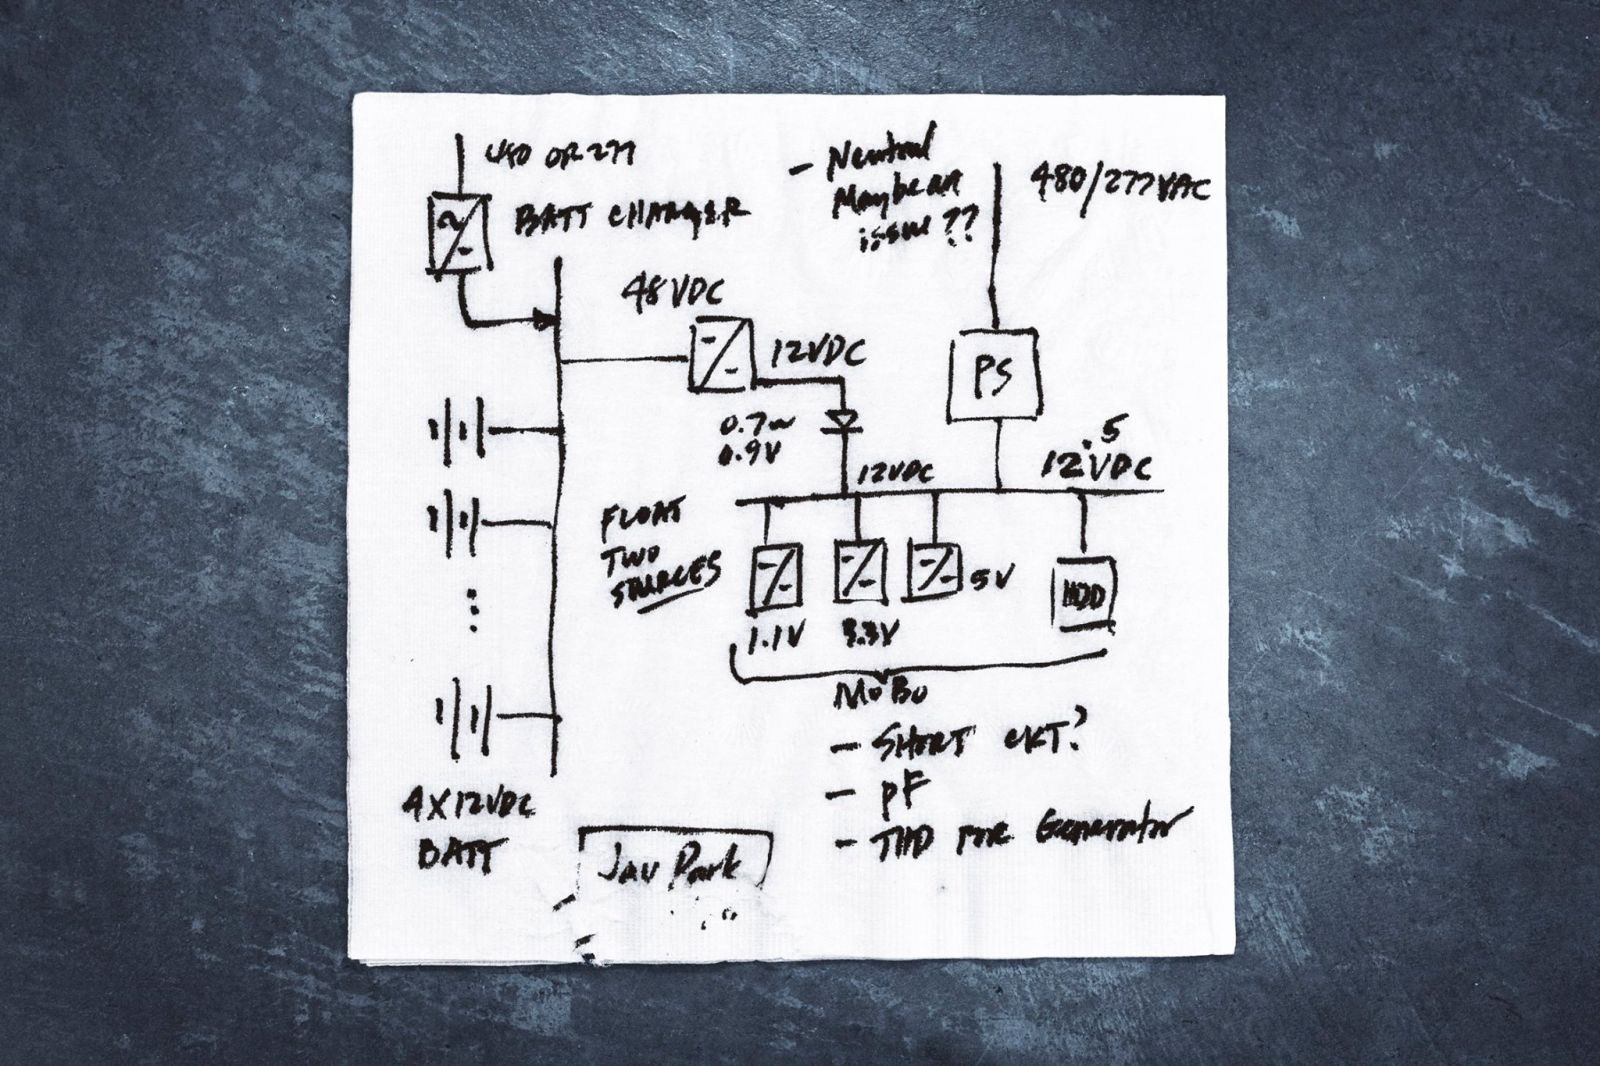 480 OR 277
BATT CHARGER
- Neutral
Maybe an
issue??
480/277VAC
48VDC
12VDC
PS
0.7~
0.9V
12VDC
12.5VDC
FLOAT
TWO
SOURCES
5V
HDD
1.1V
3.3V
MoBo
- SHORT CKT?
- PF
- THD FOR Generator
4X12VDC
BATT
Jay Park